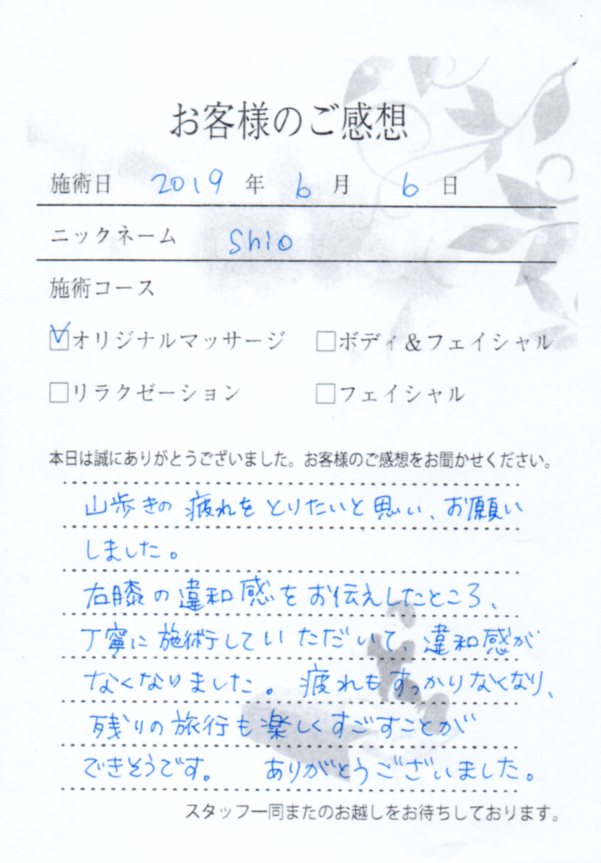 お客様のご感想
施術日 2019 年 6 月 6 日
ニックネーム Shio
施術コース
☑オリジナルマッサージ □ボディ＆フェイシャル
□リラクゼーション □フェイシャル
本日は誠にありがとうございました。お客様のご感想をお聞かせください。
山歩きの疲れをとりたいと思い、お願い
しました。
右膝の違和感をお伝えしたところ、
丁寧に施術していただいて、違和感が
なくなりました。疲れもすっかりなくなり、
残りの旅行も楽しくすごすことが
できそうです。 ありがとうございました。
スタッフ一同またのお越しをお待ちしております。